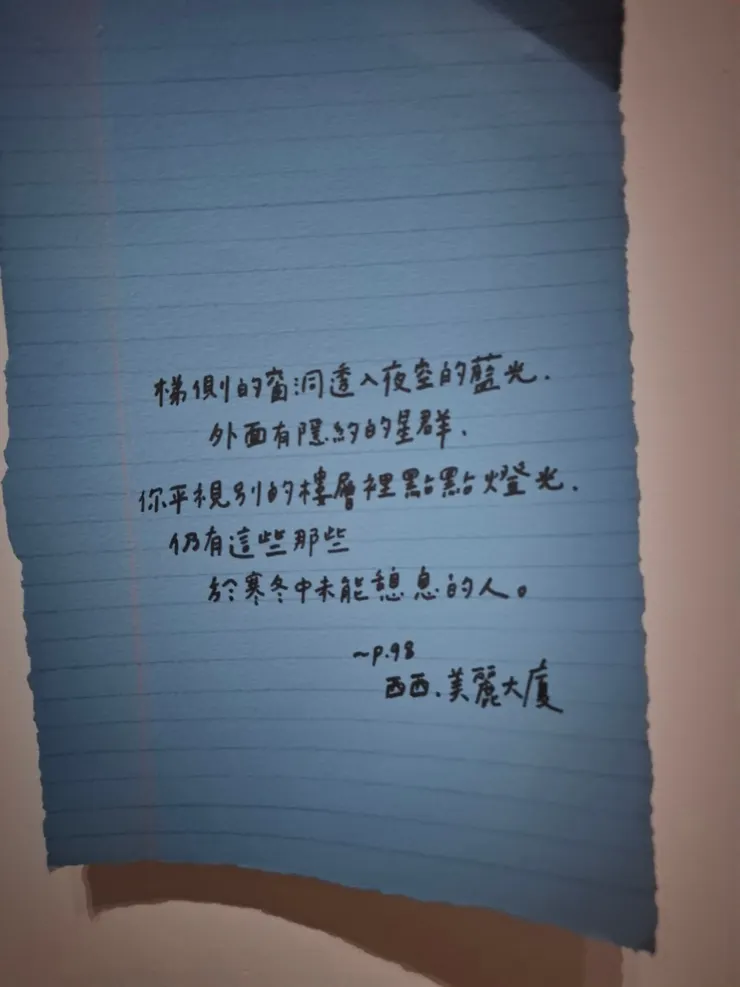 梯側的窗洞透入夜空的藍光.
外面有隱約的星群.
你平視別的樓層裡點點燈光.
仍有這些那些
於寒冬中未能憩息的人。
~p.98
西西.美麗大廈